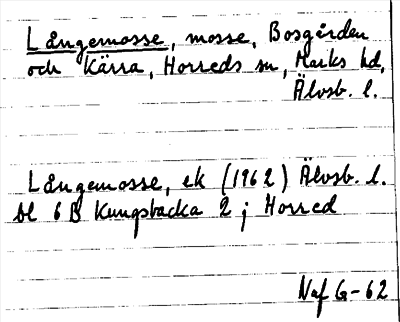 Långemosse, mosse, Bosgården
och Kärra, Horreds sn, Marks hd,
Älvsb. l.
Långemosse, ek (1962) Älvsb. l.
bl 6 B Kungsbacka 2 j Horred
Naf G-62